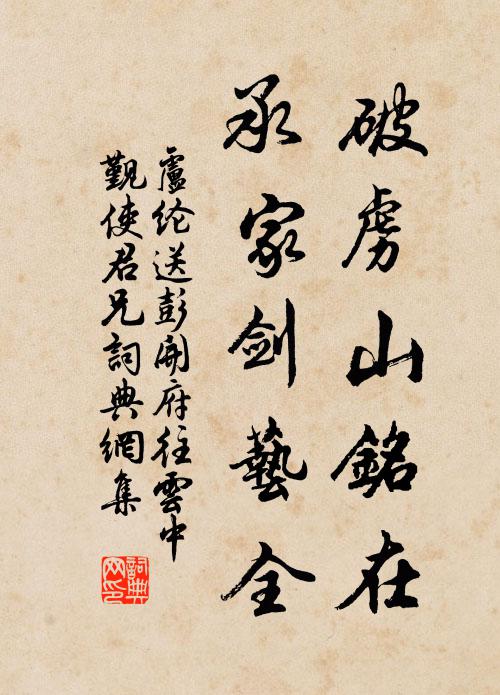 破虜山銘在
承家劍藝全
盧綸送彭開府往雲中
觐使君兄詞典網集
詞典
网印